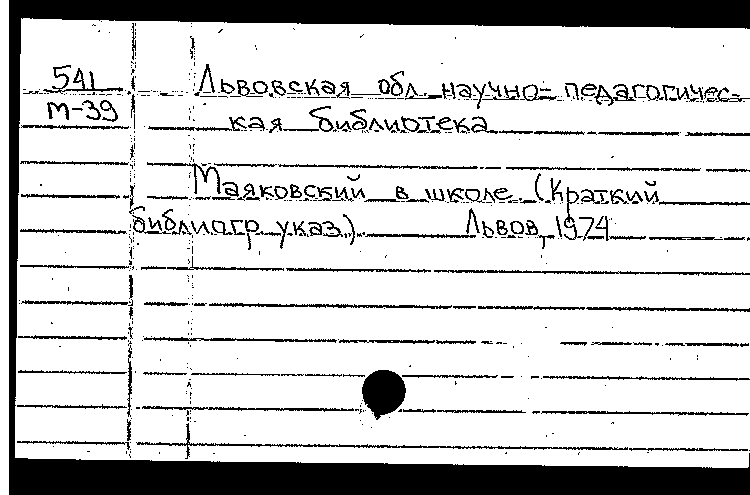 541
М-39
Львовская обл. научно-педагогичес-
кая библиотека
Маяковский в школе (Краткий
библиогр. указ.) Львов, 1974